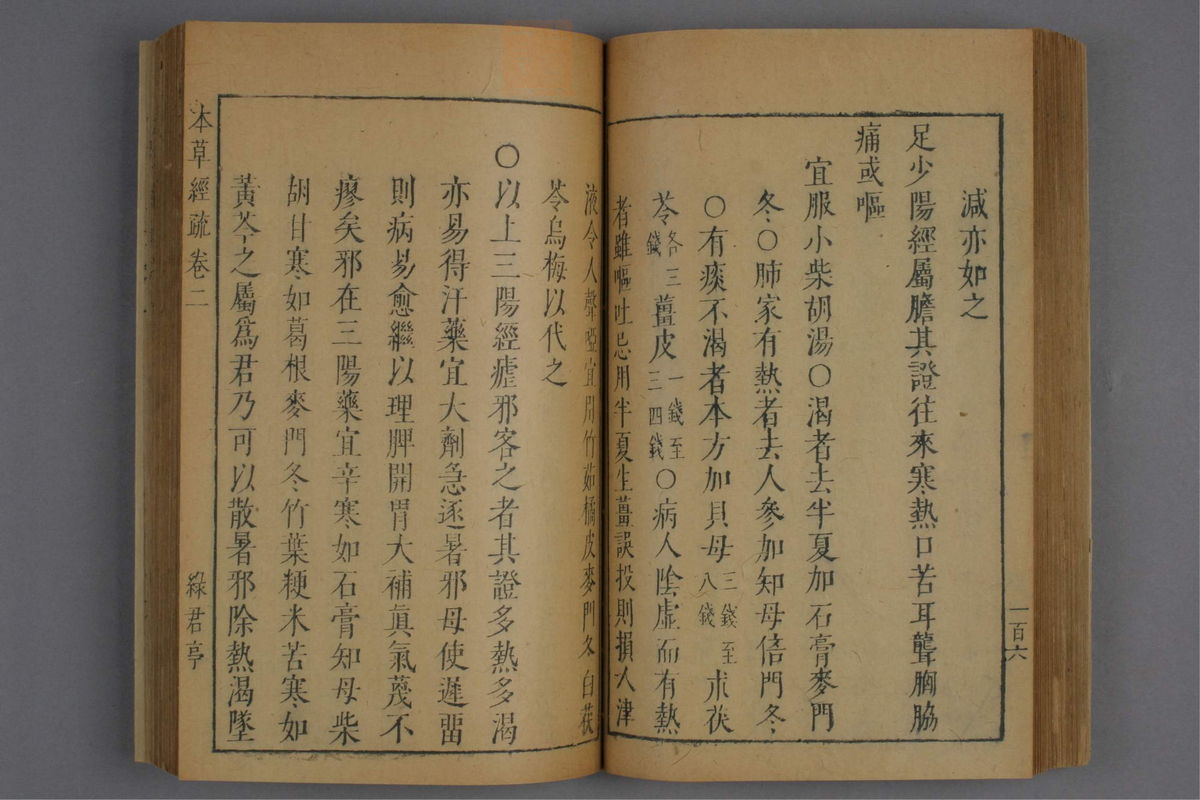 減亦如之
足少陽經屬膽其證往來寒熱口苦耳聾胸脇
痛或嘔
宜服小柴胡湯○渴者去半夏加石膏麥門
冬○肺家有熱者去人參加知母倍門冬
○有痰不渴者本方加貝母三錢至八錢朮茯
苓各三錢薑皮一錢至三四錢○病人陰虛而有熱
者雖嘔吐忌用半夏生薑誤投則損人津
一百六
液令人聲啞宜用竹茹橘皮麥門冬白茯
苓烏梅以代之
○以上三陽經瘧邪客之者其證多熱多渴
亦易得汗藥宜大劑急逐暑邪母使遲畱
則病易愈繼以理脾開胃大補眞氣蔑不
瘳矣邪在三陽藥宜辛寒如石膏知母柴
胡甘寒如葛根麥門冬竹葉粳米苦寒如
黃芩之屬爲君乃可以散暑邪除熱渴墜
本草經疏卷二
綠君亭